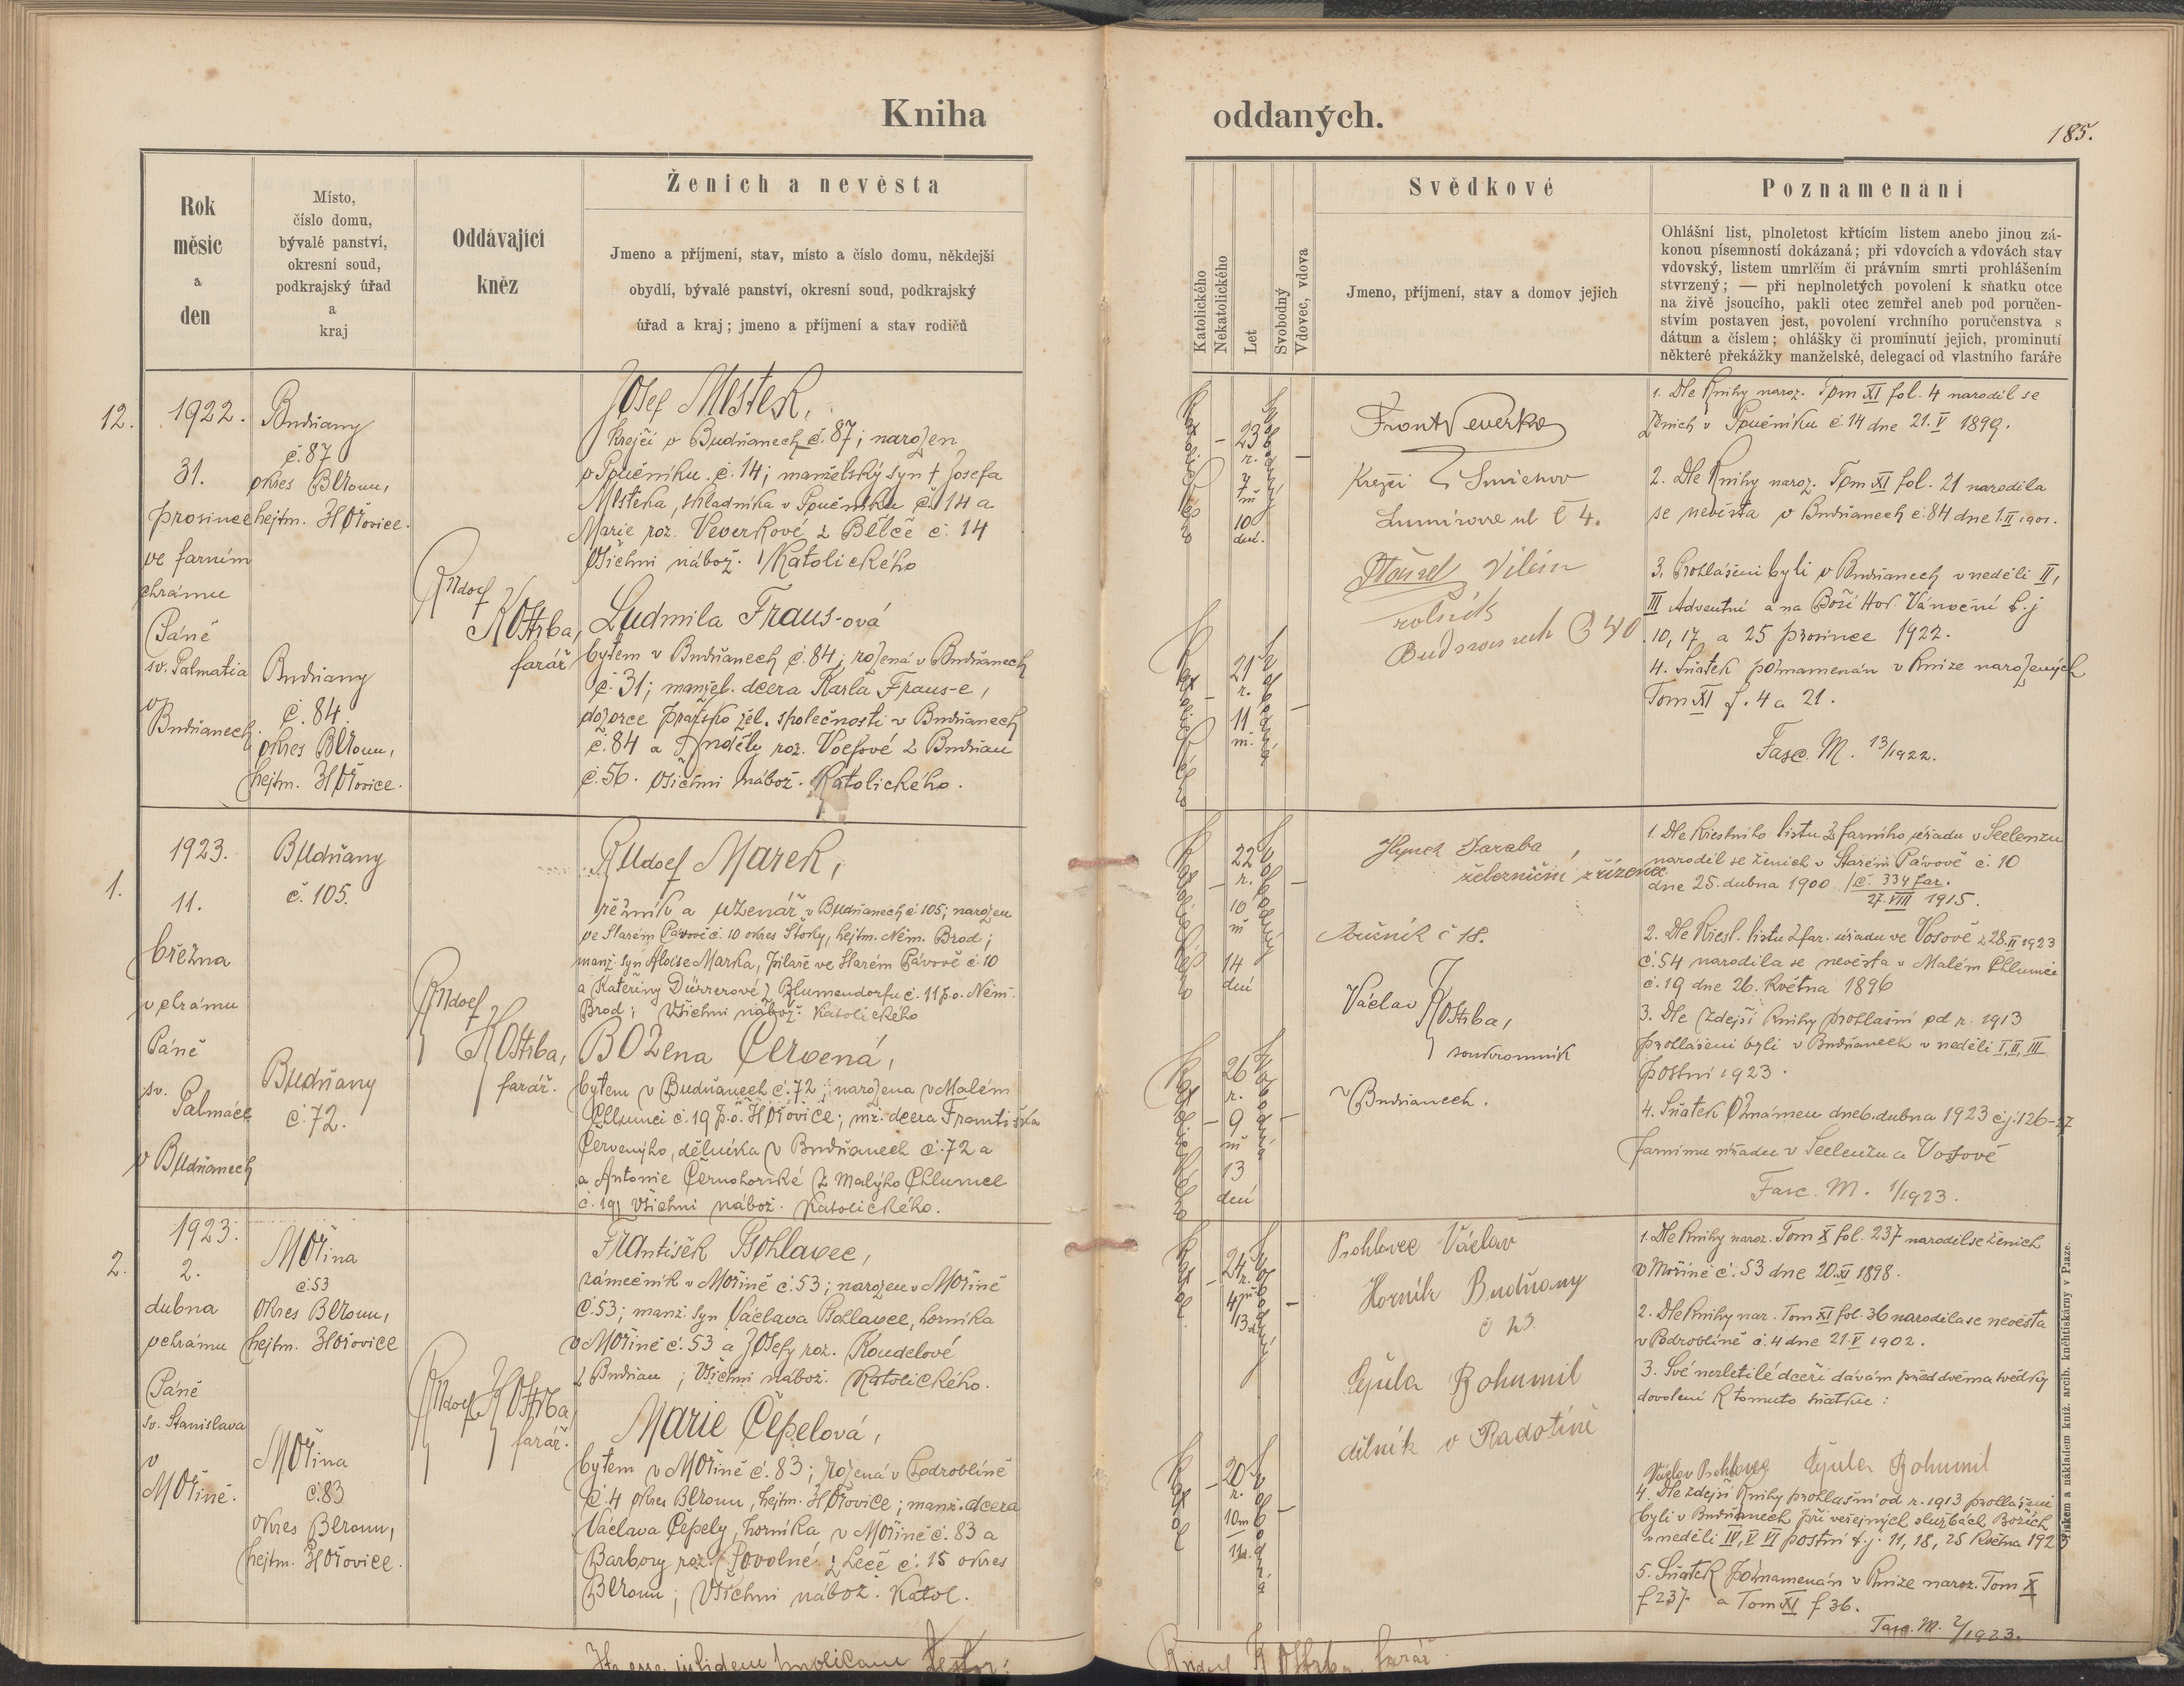 Kniha
oddaných.
185.
Rok
měsíc
a
den
Místo,
číslo domu,
bývalé panství,
okresní soud,
podkrajský úřad
a
kraj
Oddávající
kněz
Ženich a nevěsta
Jmeno a příjmení, stav, místo a číslo domu, někdejší
obydlí, bývalé panství, okresní soud, podkrajský
úřad a kraj; jmeno a příjmení a stav rodičů
12.
1922.
31.
prosince
ve farním
chrámu
Páně
sv. Palmatia
v
Budňanech.
Budňany
č. 87
okres Beroun,
hejtm. Hořovice.
Budňany
č. 84.
okres Beroun,
hejtm. Hořovice.
Rudolf
Kostrba,
farář
Josef Mestek,
krejčí v Budňanech č. 87; narozen
v Poučníku č. 14; manželský syn † Josefa
Mesteka, skladníka v Poučníku č. 14 a
Marie roz. Veverkové z Bělče č. 14
Všichni nábož. Katolického
Ludmila Fraus-ová
bytem v Budňanech č. 84; rozená v Budňanech
č. 31; manžel. dcera Karla Fraus-e,
dozorce Pražsko žel. společnosti v Budňanech
č. 84 a Anděly roz. z Budňan
č. 56. Všichni nábož. Katolického.
1.
1923.
11.
března
v chrámu
Páně
sv.
Palmáce
v Budňanech
Budňany
č. 105.
Budňany
č. 72.
Rudolf
Kostrba,
farář.
Rudolf Marek,
řezník a uzenář v Budňanech č. 105; narozen
ve Starém Pávově č. 10 okres Štoky, hejtm. Něm. Brod;
manž. syn Aloise Marka, pilaře ve Starém Pávově č. 10
a Kateřiny Dürrerové z Blumendorfu č. 11 p.o. Něm.
Brod; Všichni nábož. Katolického
Božena Červená,
bytem v Budňanech č. 72; narozena v Malém
Chlumci č. 19 p.o. Hořovice; mž. dcera Františka
Červenýho, dělníka v Budňanech č. 72 a
a Antonie Černohorské z Malýho Chlumce
č. 19; Všichni nábož. Katolického.
2.
1923.
2.
dubna
v chrámu
Páně
sv. Stanislava
v
Mořině.
Mořina
č. 53
okres Beroun,
hejtm. Hořovice
Mořina
č. 83
okres Beroun,
hejtm. Hořovice.
Rudolf Kostrba
farář.
František Pohlavec,
zámečník v Mořině č. 53; narozen v Mořině
č. 53; manž. syn Václava Pohlavce, horníka
v Mořině č. 53 a Josefy roz. Koudelové
z Budňan; Všichni nábož. Katolického.
Marie Čepelová,
bytem v Mořině č. 83; rozená v Podroblíně
č. 4 okres Beroun, hejtm. Hořovice; manž. dcera
Václava Čepely, horníka v Mořině č. 83 a
Barbory roz. Povolné z Leče č. 15 okres
Beroun; Všichni nábož. Katol.
Katolického
Nekatolického
Let
Svobodný
Vdovec, vdova
Svědkové
Jmeno, příjmení, stav a domov jejich
Poznamenání
Ohlášní list, plnoletost křtícím listem anebo jinou zá-
konou písemností dokázaná; při vdovcích a vdovách stav
vdovský, listem umrlčím či právním smrti prohlášením
stvrzený; — při neplnoletých povolení k sňatku otce
na živě jsoucího, pakli otec zemřel aneb pod poručen-
stvím postaven jest, povolení vrchního poručenstva s
dátum a číslem; ohlášky či prominutí jejich, prominutí
některé překážky manželské, delegací od vlastního faráře
Katolického
23 r. 7 m 10 dní.
Svobodný
Katolického
21 r. 11 m.
Svobodná
Frant Veverka
Krejčí Smíchov
Lumírova ul č 4.
Vilém
rolník
č 40
1. Dle Knihy naroz. Tom XI fol. 4 narodil se
ženich v Poučníku č. 14 dne 21. V 1899.
2. Dle Knihy naroz. Tom XI fol. 21 narodila
se nevěsta v Budňanech č. 84 dne 1. II 1901.
3. Prohlášeni byli v Budňanech v neděli II,
III Adventní a na Boží Hod Vánoční t. j
10, 17, a 25 prosince 1922.
4. Sňatek poznamenán v Knize narozených
Tom XI f. 4 a 21.
Fasc. M. 13/1922.
Katolického
22 r. 10 m 14 dní
Svobodný
Katolického
26 r. 9 m 13 dní
Svobodná
Hynek Faraba,
železniční zřízenec
Poučník č 18.
Václav Kostrba,
soukromník
v Budňanech.
1. Dle Křestního listu z farního úřadu v Seelenzu
narodil se ženich v Starém Pávově č. 10
dne 25. dubna 1900 / č. 334 far.
27. VIII 1915.
2. Dle Křest. listu z far. úřadu ve Vosově z 28. II 1923
č. 54 narodila se nevěsta v Malém Chlumci
č. 19 dne 26. Května 1896
3. Dle zdejší Knihy prohlašní od r. 1913
prohlášeni byli v Budňanech v neděli I, II, III
postní 1923.
4. Sňatek oznámen dne 6. dubna 1923 čj. 126-27
farnímu úřadu v Seelenzu a Vosově
Fasc. M. 1/1923.
Katol
24 r. 4 m 13 d.
Svobodný
Katol
20 r. 10 m 11 d.
Svobodná
Pohlavec Václav
Horník Budňany
č 23.
Gjula Bohumil
dělník v Radotíně
1. Dle Knihy naroz. Tom X fol. 237 narodil se ženich
v Mořině č. 53 dne 20. XI 1898.
2. Dle Knihy nar. Tom XI fol. 36 narodila se nevěsta
v Podroblíně č. 4 dne 21. V 1902.
3. Své nezletilé dceři dávám před dvěma svědky
dovolení k tomuto sňatku:
Václav Pohlavec Gjula Bohumil
4. Dle zdejší Knihy prohlašní od r. 1913 prohlášeni
byli v Budňanech při veřejných službách Božích
v neděli IV, V VI postní t. j. 11, 18, 25 Května 1923
5. Sňatek poznamenán v Knize naroz. Tom X
f 237 a Tom XI f 36.
Fasc. M. 2/1923.
Tiskem a nákladem kníž. arcib. knihtiskárny v Praze.
Rudolf Kostrba, farář